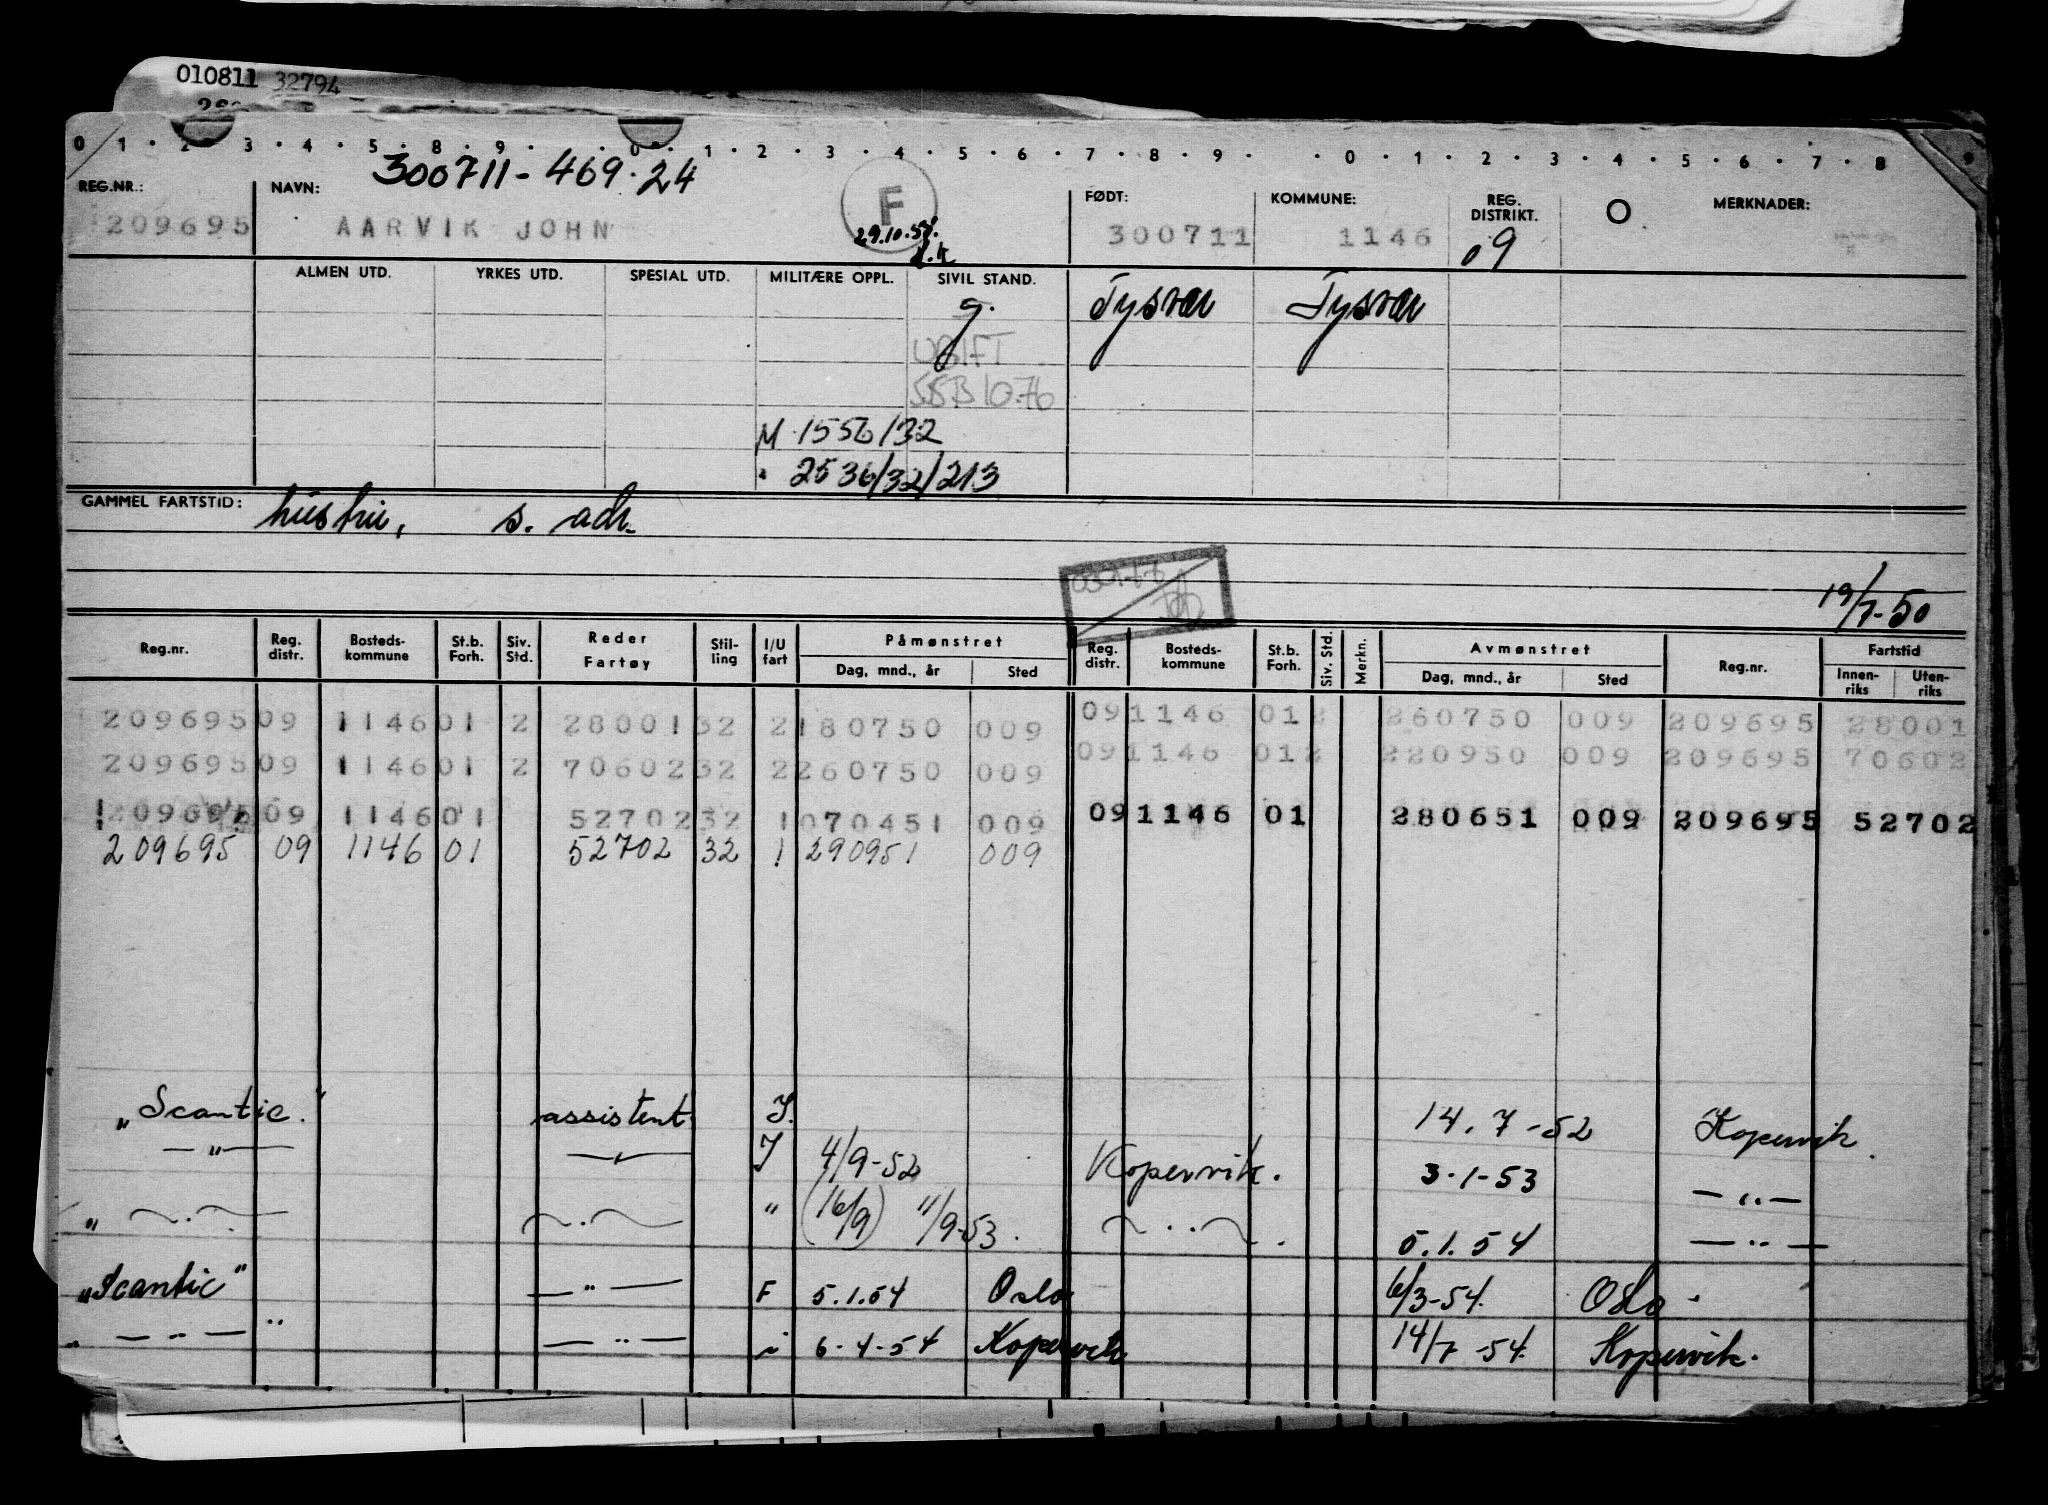 010811 32794
0 1 2 3 4 5 8 9 0 1 2 3 4 5 6 7 8 9 0 1 2 3 4 5 6 7 8 9
300711-469.24
REG.NR.: NAVN: F FØDT: KOMMUNE: REG. DISTRIKT. O MERKNADER:
209695 AARVIK JOHN 29.10.54. 300711 1146 09
ALMEN UTD. YRKES UTD. SPESIAL UTD. MILITÆRE OPPL. SIVIL STAND.
g. Tysvær Tysvær
UGIFT
SSB 10.76
M 1556/32
" 2536/32/213
GAMMEL FARTSTID: hustru, s. adr.
19/7-50
Reg.nr. Reg. distr. Bosteds-kommune St.b. Forh. Siv. Std. Reder Fartøy Stil-ling I/U fart Påmønstret Dag, mnd., år Sted Reg. distr. Bosteds-kommune St.b. Forh. Siv. Std. Merkn. Avmønstret Dag, mnd., år Sted Reg.nr. Fartstid Innen-riks Uten-riks
209695 09 1146 01 2 28001 32 2 180750 009 09 1146 01 2 260750 009 209695 28001
209695 09 1146 01 2 70602 32 2 260750 009 09 1146 01 2 220950 009 209695 70602
209695 09 1146 01 52702 32 1 070451 009 09 1146 01 280651 009 209695 52702
209695 09 1146 01 52702 32 1 290951 009
"Scantic." assistent I. 14.7-52 Kopervik.
—"— —"— I 4/9-52 Kopervik. 3.1-53 —"—
" —"— —"— " (16/9) 11/9-53. —"—. 5.1.54 —"—
"Scantic" —"— F 5.1.54 Oslo 6/3-54. Oslo.
" —"— " —"— i 6-4-54 Kopervik 14/7-54. Kopervik.